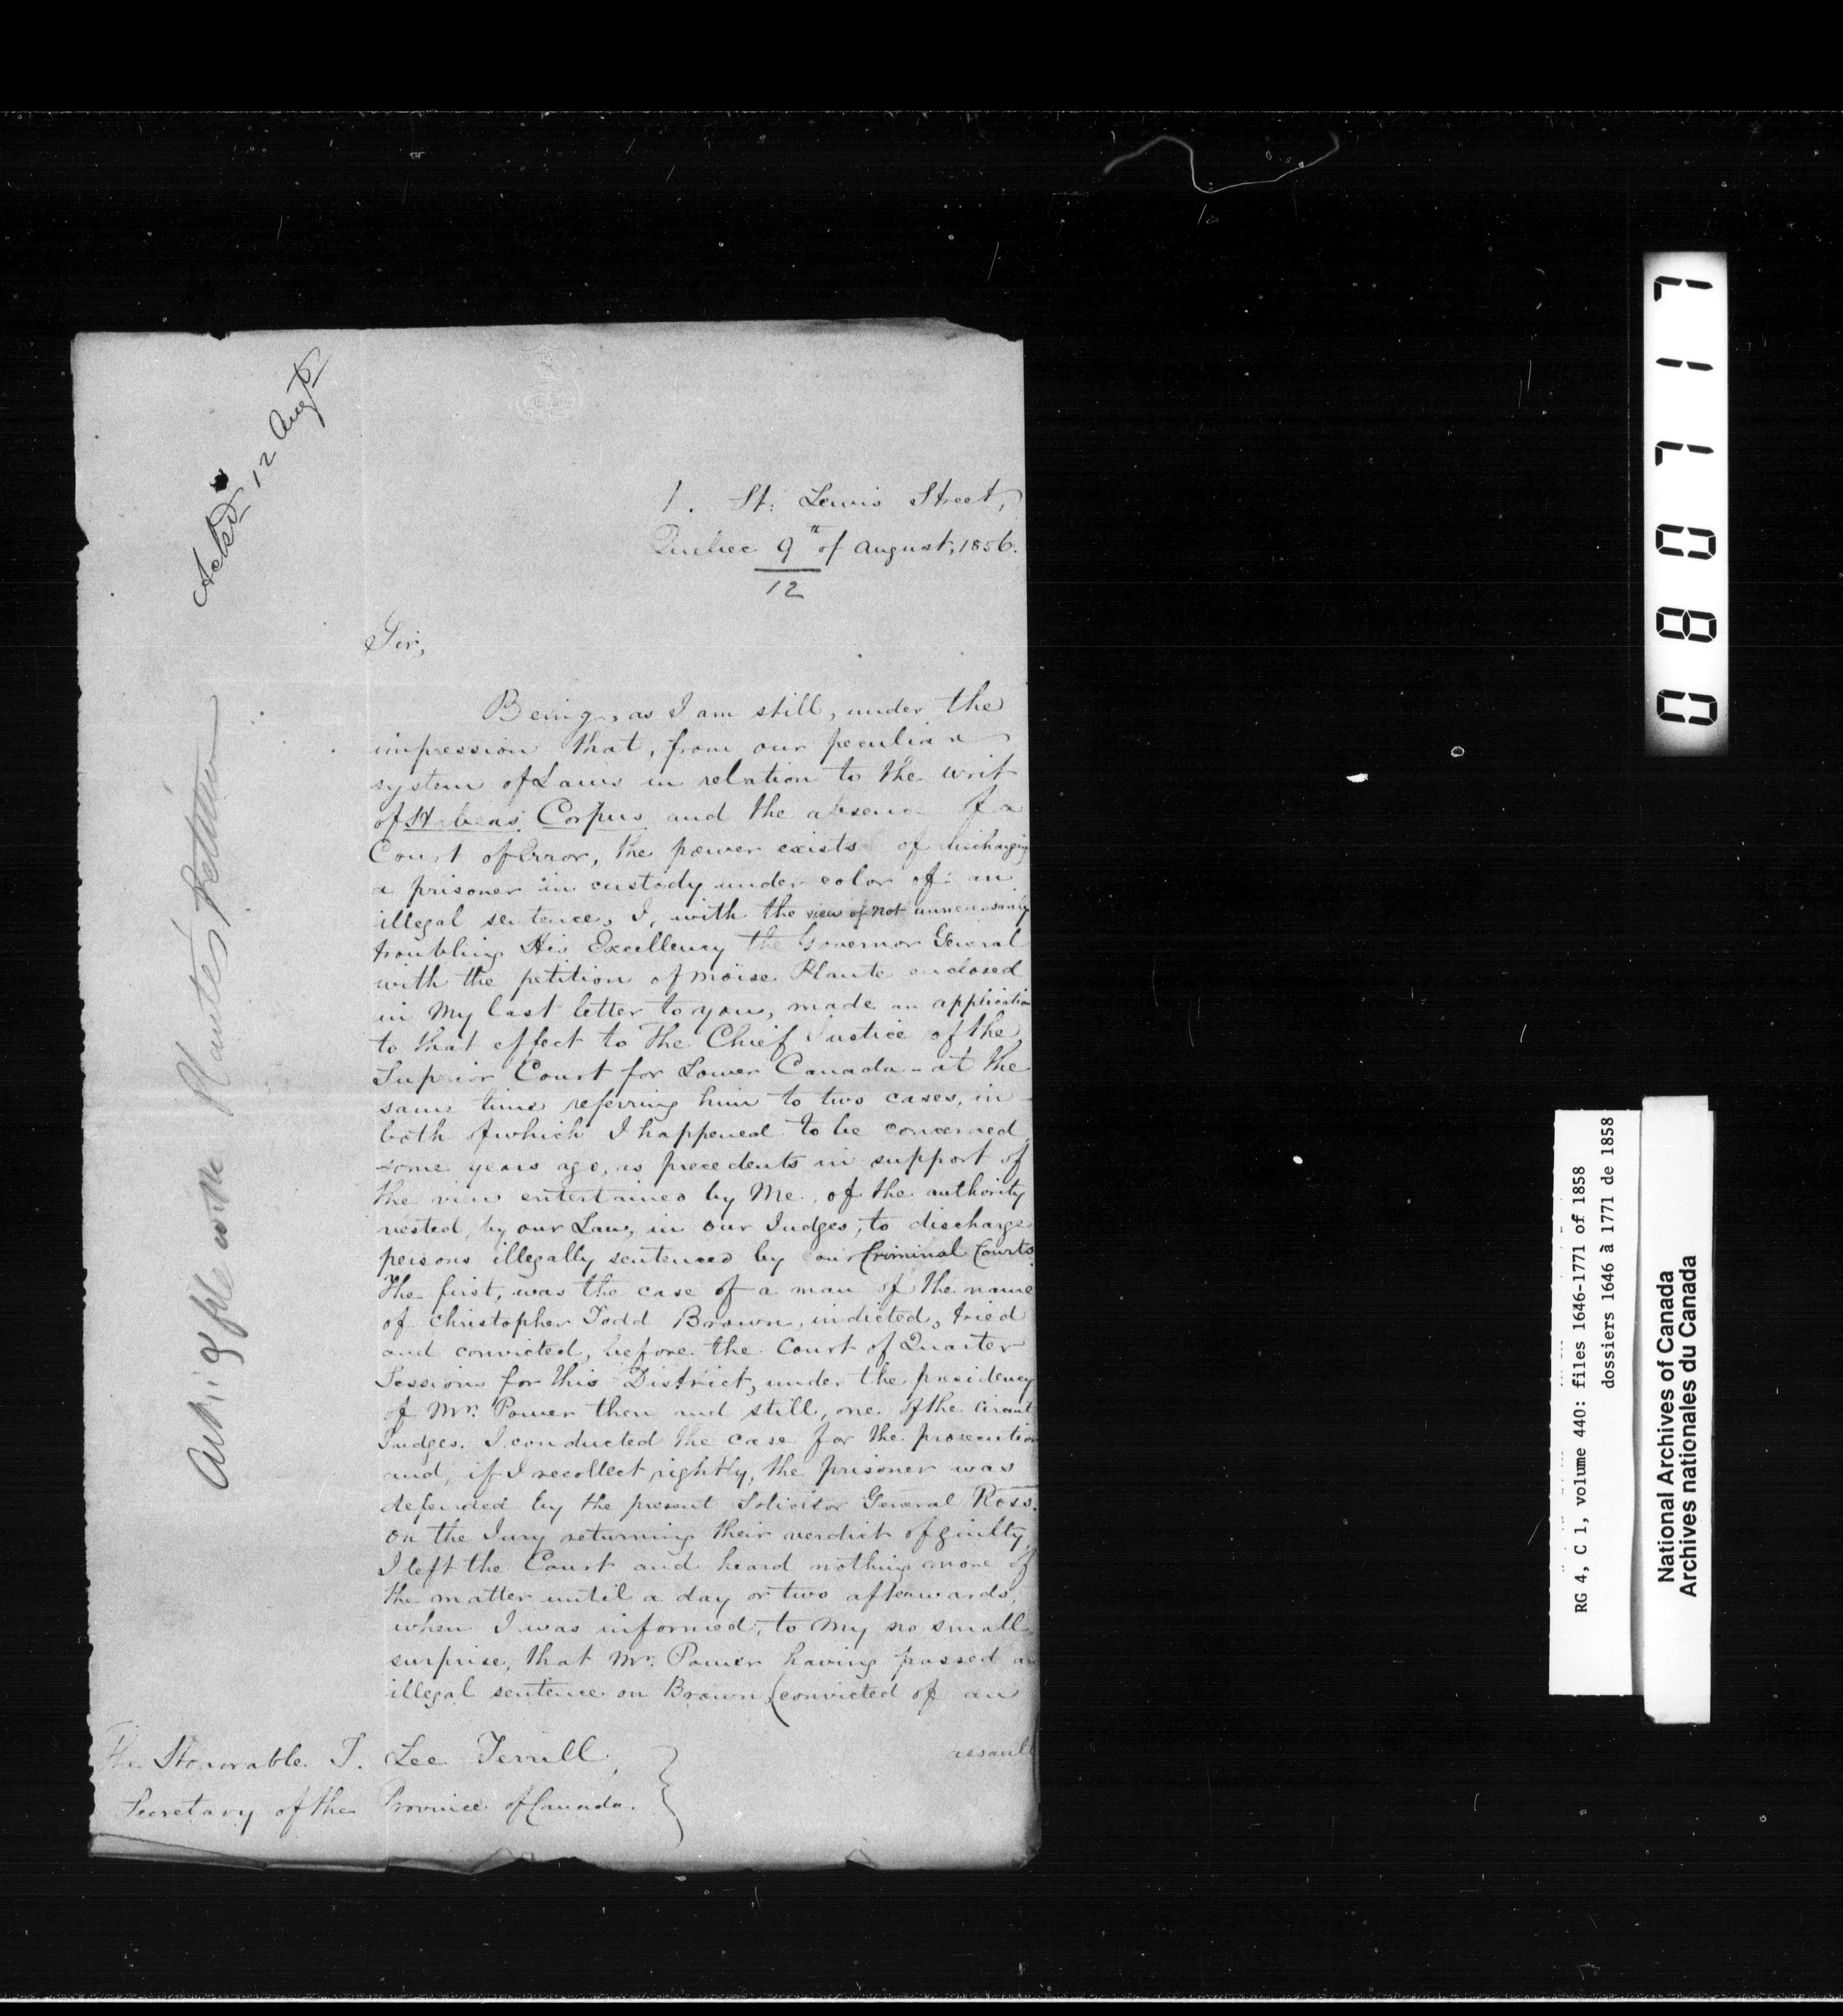 Ackd 12 Augt
1. St: Lewis Street,
Quebec 9th of August, 1856.
12
Sir,
Being, as I am still, under the
impression that, from our peculiar
system of Laws in relation to the writ
of Habeas Corpus and the absence of a
Court of Error, the power exists of discharging
a prisoner in custody under color of an
illegal sentence, I, with the view of not unnecessarily
troubling His Excellency the Governor General
with the petition of Moise Plante enclosed
in my last letter to you, made an application
to that effect to the Chief Justice of the
Superior Court for Lower Canada - at the
same time referring him to two cases, in
both of which I happened to be concerned
some years ago, as precedents in support of
the view entertained by me, of the authority
vested, by our Law, in our Judges, to discharge
persons illegally sentenced by our Criminal Courts.
The first, was the case of a man of the name
of Christopher Todd Brown, indicted, tried
and convicted, before the Court of Quarter
Sessions for this District, under the presidency
of Mr. Power then and still, one of the Circuit
Judges. I conducted the case for the prosecution
and, if I recollect rightly, the prisoner was
defended by the present Solicitor General Ross.
On the Jury returning their verdict of guilty,
I left the Court and heard nothing more of
the matter until a day or two afterwards,
when I was informed, to my no small
surprise, that Mr. Power having passed an
illegal sentence on Brown, (convicted of an
assault
The Honorable T. Lee Terrill,
Secretary of the Province of Canada.
Plante's Petition
0807117
RG 4, C 1, volume 440: files 1646-1771 of 1858
dossiers 1646 à 1771 de 1858
National Archives of Canada
Archives nationales du Canada